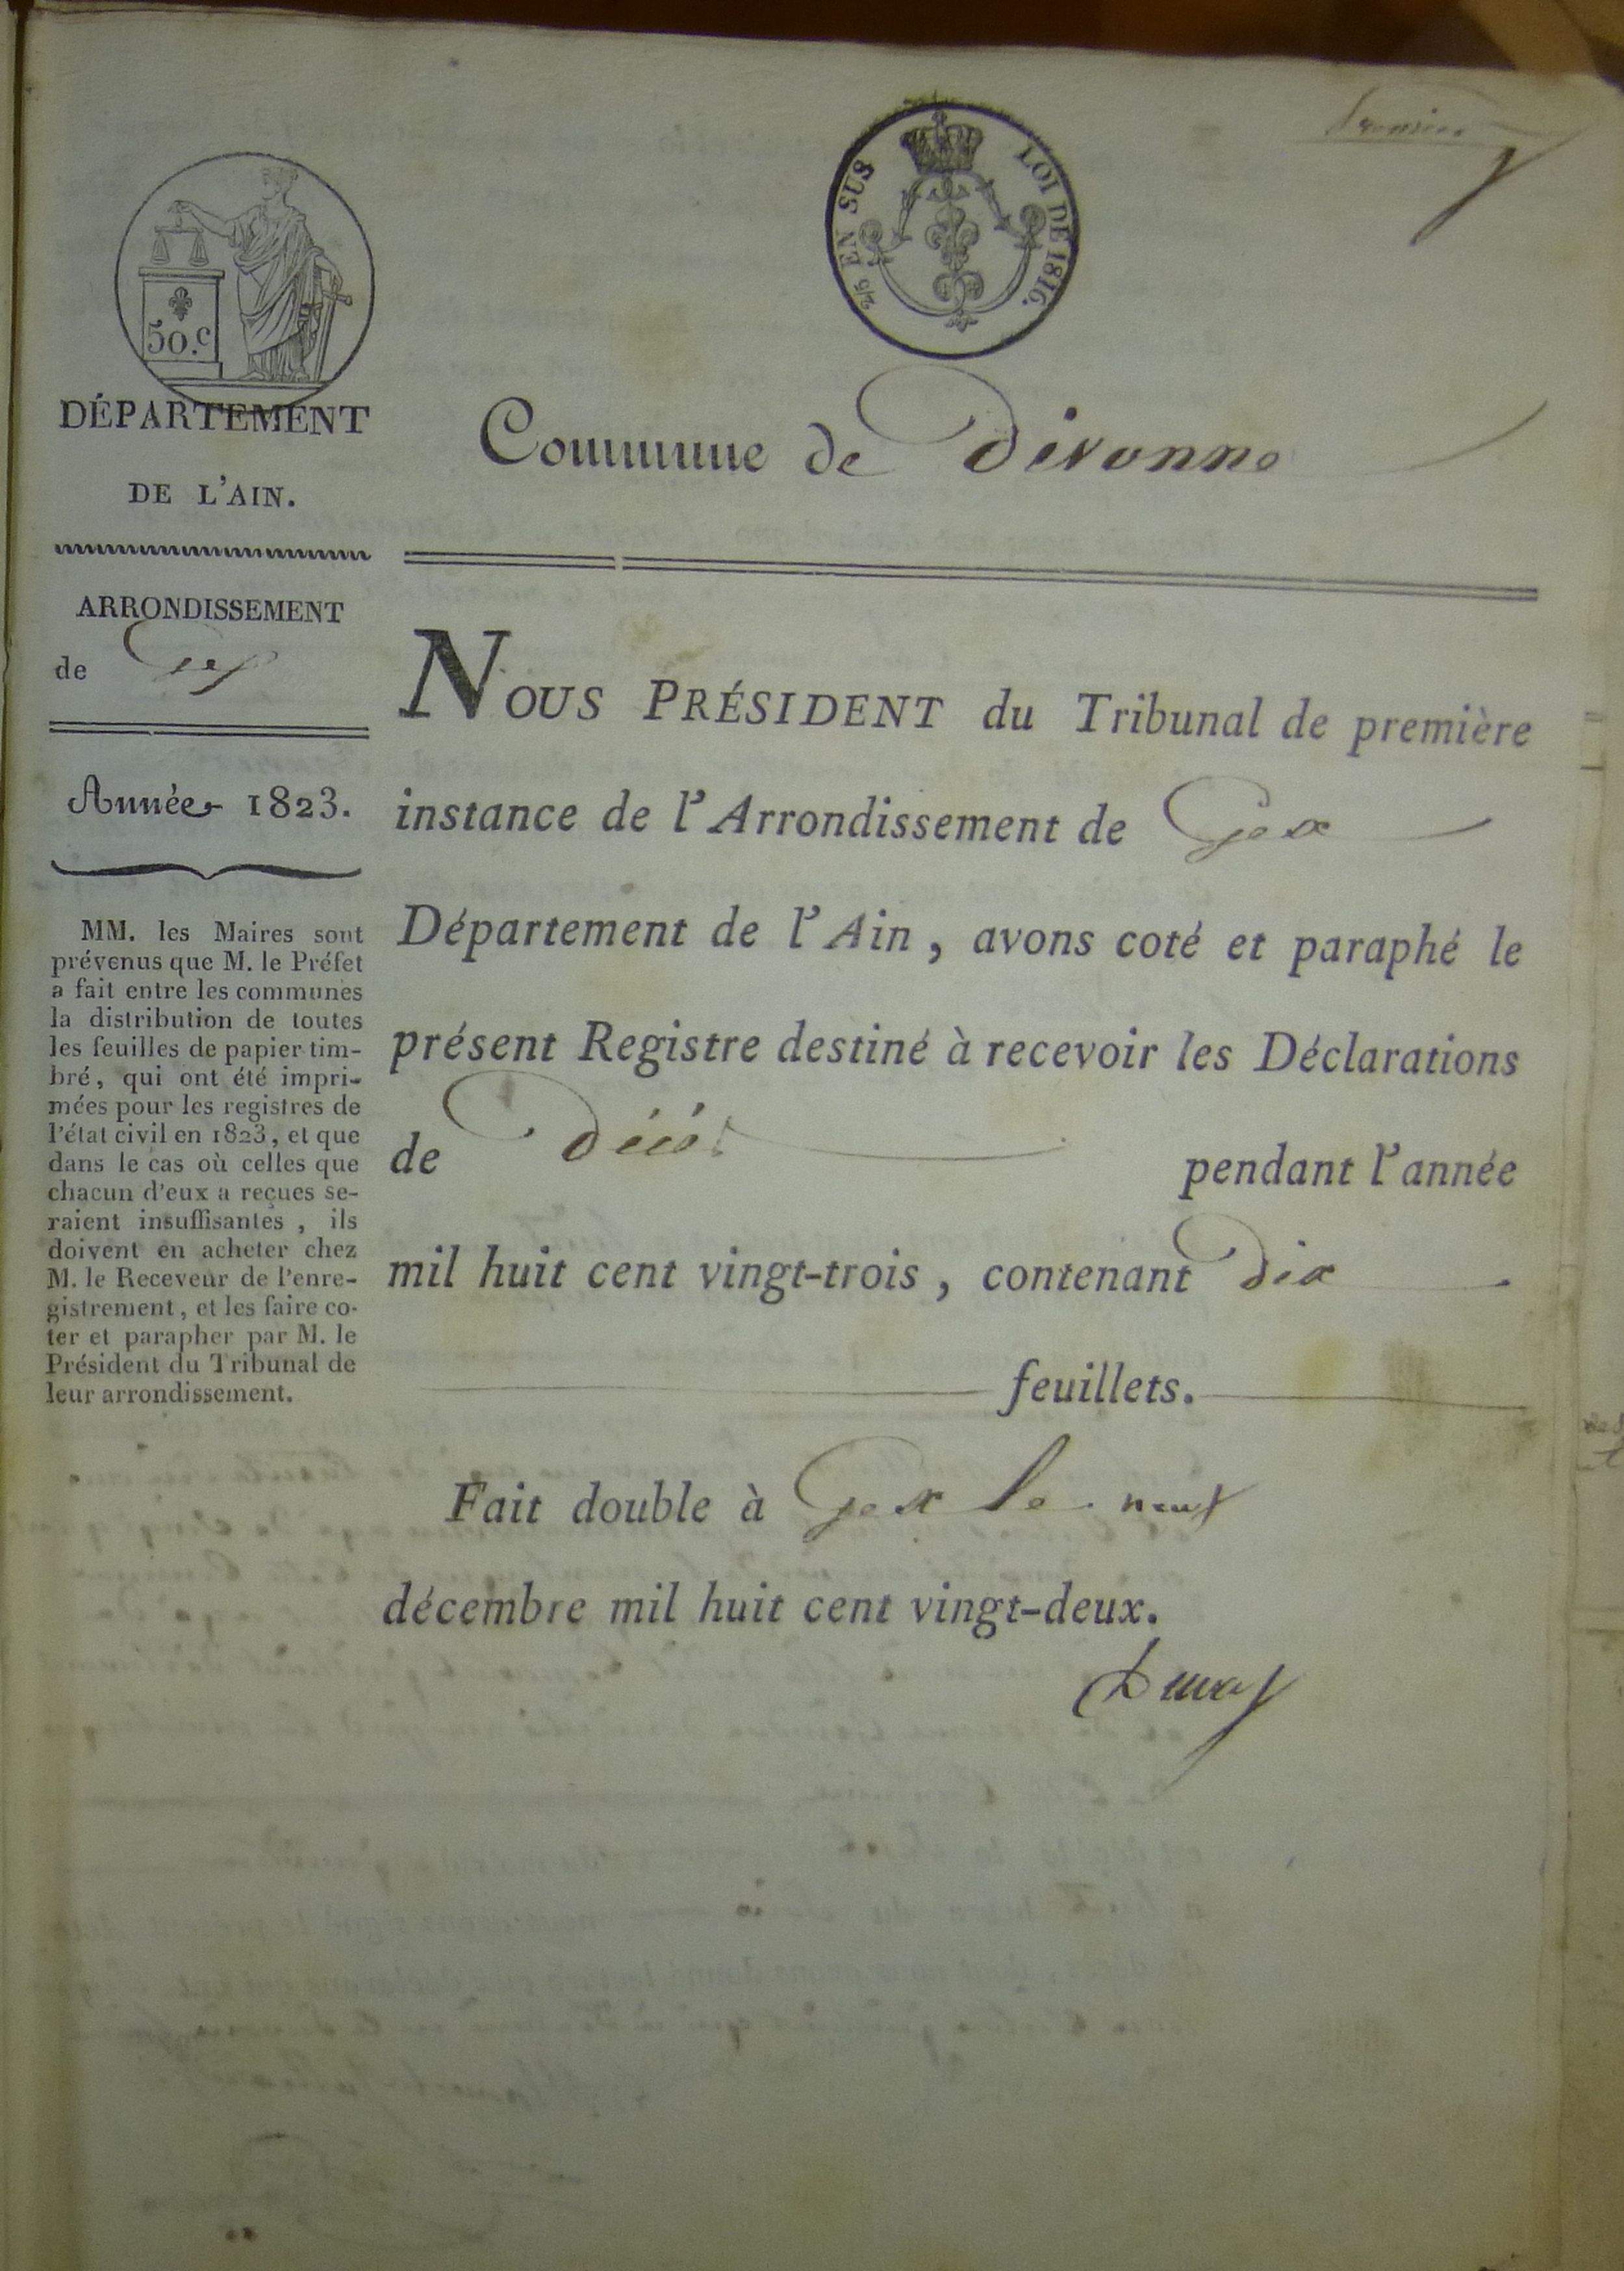 Première
2/5 EN SUS LOI DE 1816.
50.c
DÉPARTEMENT
DE L'AIN.
ARRONDISSEMENT
de Gex
Année 1823.
MM. les Maires sont
prévenus que M. le Préfet
a fait entre les communes
la distribution de toutes
les feuilles de papier tim-
bré, qui ont été impri-
mées pour les registres de
l'état civil en 1823, et que
dans le cas où celles que
chacun d'eux a reçues se-
raient insuffisantes, ils
doivent en acheter chez
M. le Receveur de l'enre-
gistrement, et les faire co-
ter et parapher par M. le
Président du Tribunal de
leur arrondissement.
Commune de Divonne
NOUS PRÉSIDENT du Tribunal de première
instance de l'Arrondissement de Gex
Département de l'Ain, avons coté et paraphé le
présent Registre destiné à recevoir les Déclarations
de Décès pendant l'année
mil huit cent vingt-trois, contenant Dix
feuillets.
Fait double à Gex le neuf
décembre mil huit cent vingt-deux.